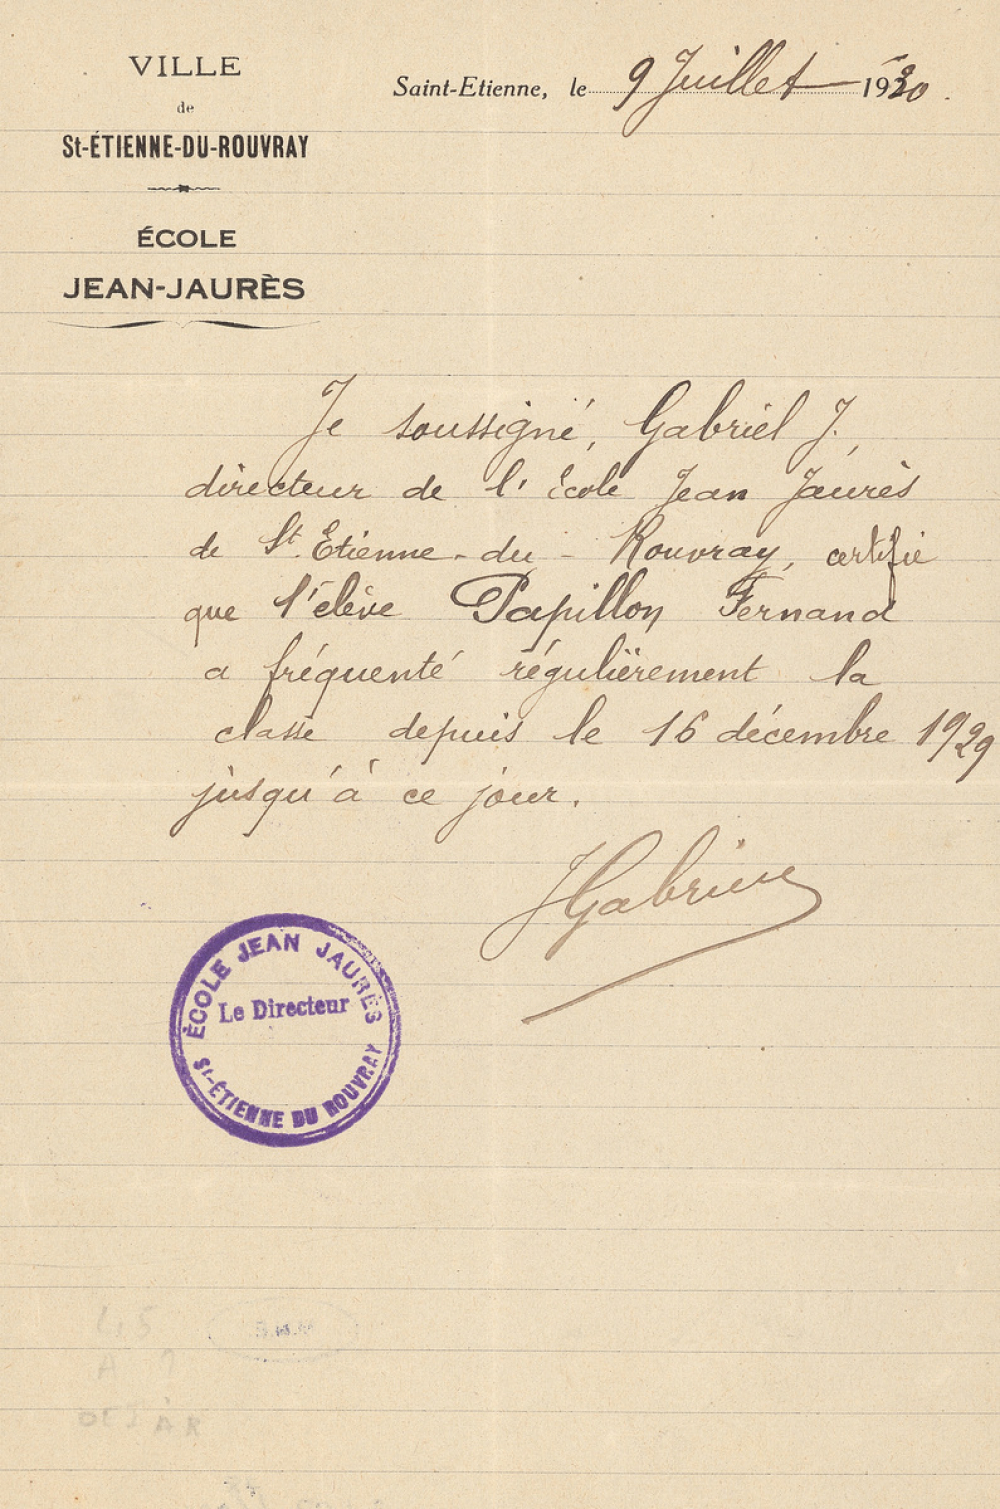 VILLE
de
St-ÉTIENNE-DU-ROUVRAY
ÉCOLE
JEAN-JAURÈS
Saint-Etienne, le 9 Juillet 1930.
Je soussigné, Gabriel J.,
directeur de l'école Jean Jaurès
de St. Etienne-du-Rouvray, certifie
que l'élève Papillon Fernand
a fréquenté régulièrement la
classe depuis le 16 décembre 1929
jusqu'à ce jour.
JGabriel
ÉCOLE JEAN JAURÈS
Le Directeur
St-ÉTIENNE DU ROUVRAY